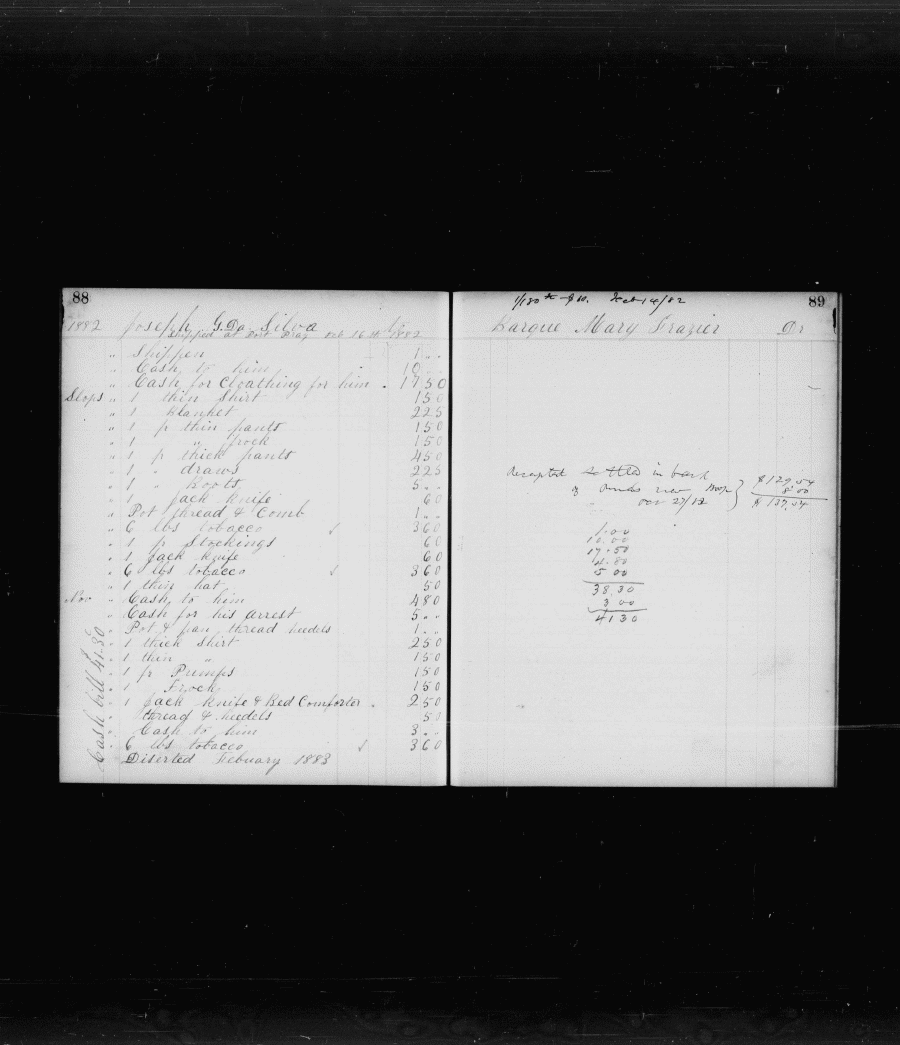 88
1882 Joseph G. Da Silva
Shipped at Port Praz Oct 16th 1882
" Shippen 1 " "
" Cash to him 10 " "
" Cash for Cloathing for him . 17 50
Slops " 1 thin Shirt 1 50
" 1 Blanket 2 25
" 1 pr thin pants 1 50
" 1 " frock 1 50
" 1 pr thick pants 4 50
" 1 " draws 2 25
" 1 " Boots 5 " "
" 1 Jack knife 60
" Pot thread & Comb 1 " "
" 6 lbs tobacco 3 60
" 1 pr Stockings 60
" 1 Jack knife 60
" 6 lbs tobacco 3 60
" 1 thin hat 50
Nov " Cash to him 4 80
" Cash for his arrest 5 " "
" Pot & pan thread needels 1 " "
" 1 thick Shirt 2 50
" 1 thin " 1 50
" 1 pr Pumps 1 50
" 1 Frock 1 50
" 1 Jack knife & Bed Comforter . 2 50
" thread & needels 50
" Cash to him 3 " "
" 6 lbs tobacco 3 60
Diserted Febuary 1883
Cash bill 41.30
89
Barque Mary Frazier Dr
settled in back
of
$129.54
8.00
$137.54
1.00
10.00
17.50
4.80
5.00
38.30
3.00
41.30